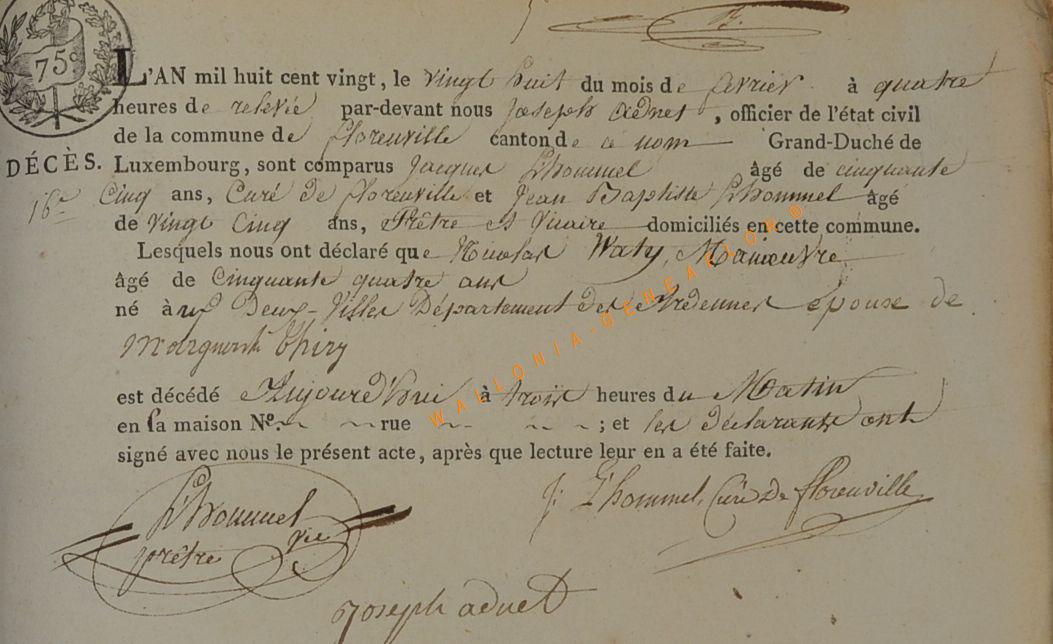 75c
L'AN mil huit cent vingt, le vingt huit du mois de fevrier à quatre
heures de relevée par-devant nous Joseph Adnet, officier de l'état civil
de la commune de florenville canton de ce nom Grand-Duché de
DÉCÈS. Luxembourg, sont comparus Jacques Lhommel âgé de cinquante
16e Cinq ans, Curé de florenville et Jean Baptiste Lhommel âgé
de vingt Cinq ans, Prêtre et Vicaire domiciliés en cette commune.
Lesquels nous ont déclaré que Nicolas Waty, Manoeuvre
âgé de Cinquante quatre ans
né à Deux-Villes Département des Ardennes epoux de
Marguerite thiry
est décédé Aujourd'hui à trois heures du Matin
en la maison No. rue ; et les déclarants ont
signé avec nous le présent acte, après que lecture leur en a été faite.
Lhommel
prêtre vic
J: L'hommel, Curé De florenville
joseph adnet
WALLONIA-GENEARLON®